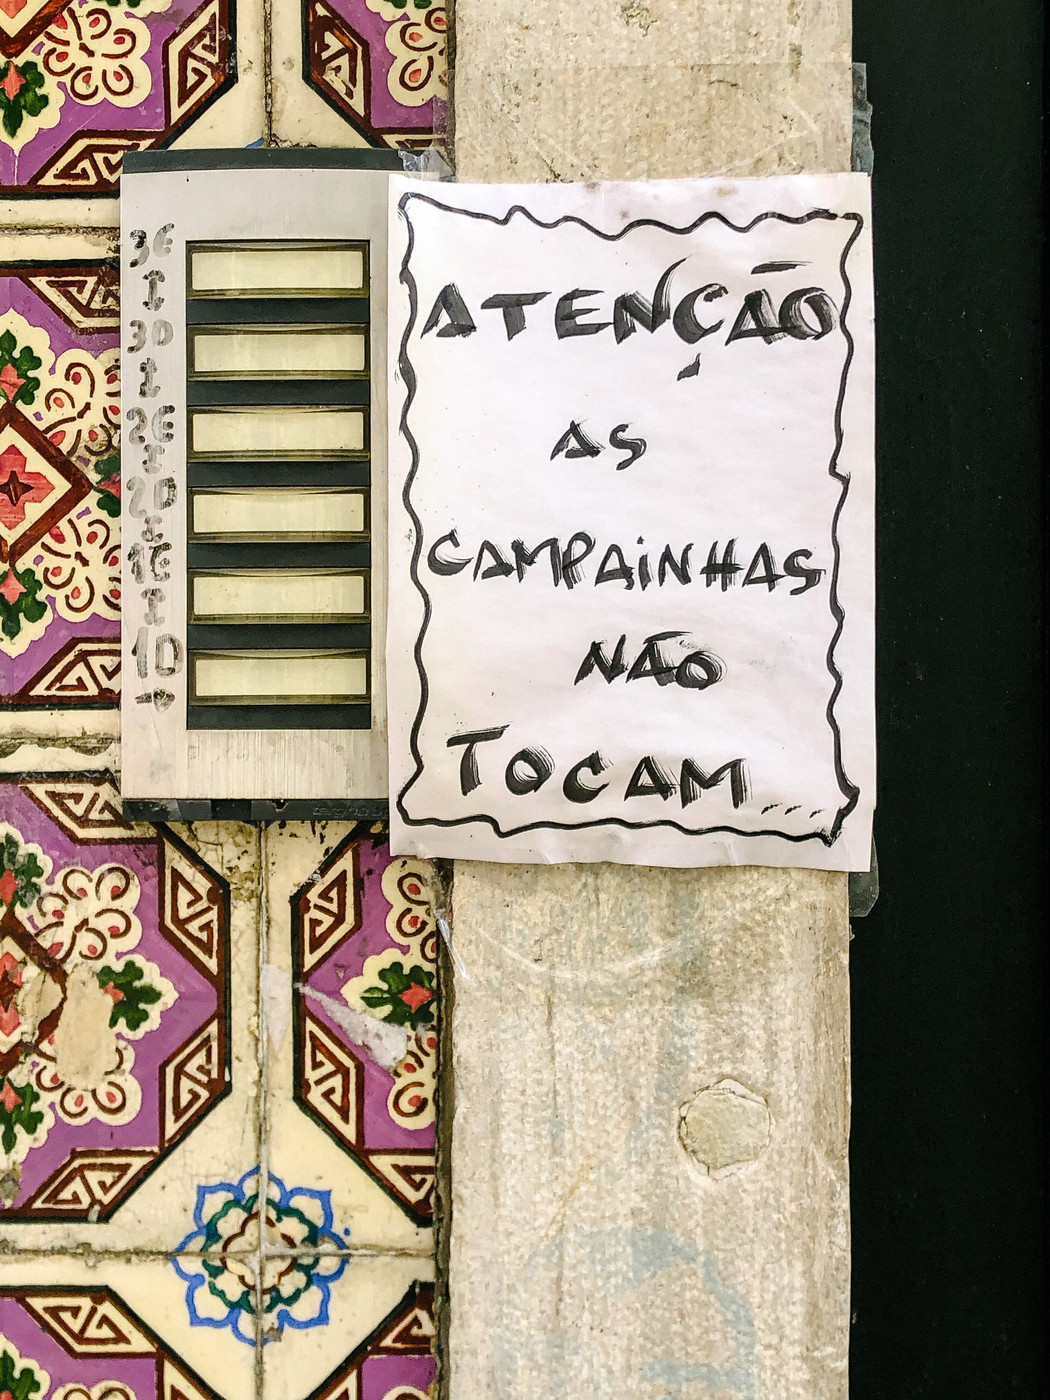 3E
3D
2E
2D
1E
1D
ATENÇÃO
AS
CAMPAiNHAS
NÃO
TOCAM...